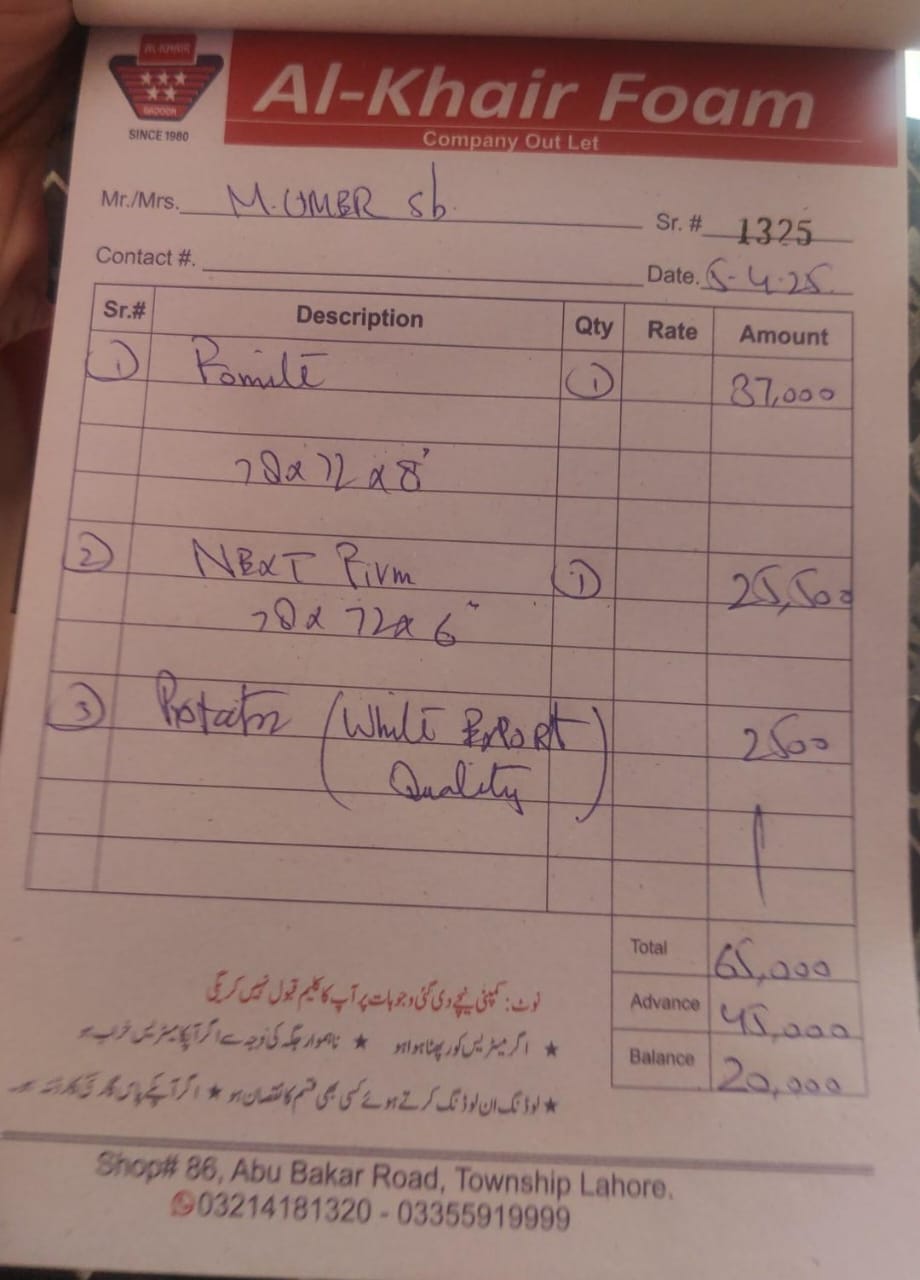 AL-KHAIR
GADOON
SINCE 1980
Al-Khair Foam
Company Out Let
Mr./Mrs. M. UMER Sb.
Sr. # 1325
Contact #.
Date. 5-4-25.
Sr.# Description Qty Rate Amount
① ① 37,000
78x72x8"
② NEXT Firm ① 25,500
78x72x6"
③ (White Export 2500
Quality)
Total 65,000
Advance 45,000
Balance 20,000
نوٹ: کمپنی نیچے دی گئی وجوہات پر آپ کا کلیم قبول نہیں کریگی
★ اگر میٹریس کور پھٹا ہوا ہو ★ ناہموار جگہ کی وجہ سے اگر آپکا میٹریس خراب ہو
★ لوڈنگ ان لوڈنگ کرتے ہوئے کسی بھی قسم کا نقصان ہو ★ اگر آپکے پاس
Shop# 86, Abu Bakar Road, Township Lahore.
03214181320 - 03355919999